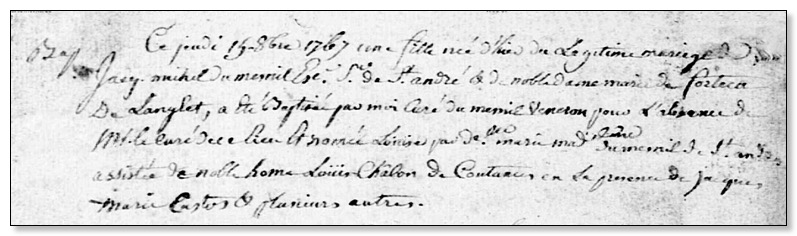 Bap. Ce jeudi 15 8bre 1767 une fille née d'hier du Legitime mariage de
Jacq. michel Dumesnil Esc. Sr. de St. andré & de noble dame marie de
De Langlet, a été Baptisée par moi Curé du mesnil Veneron pour L'absence de
Mr. le curé de ce lieu Et nomée Louise par de. marie mad. Dumesnil de St. andré
assistée de noble home Loüis Chalon de Coutances en Le presence de Jacques
Marie Castos & plusieurs autres.